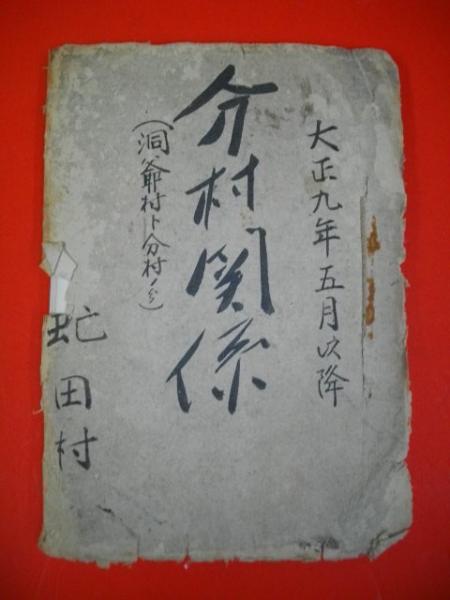 大正九年五月以降
分村関係
(洞爺村ト分村ノ分)
虻田村